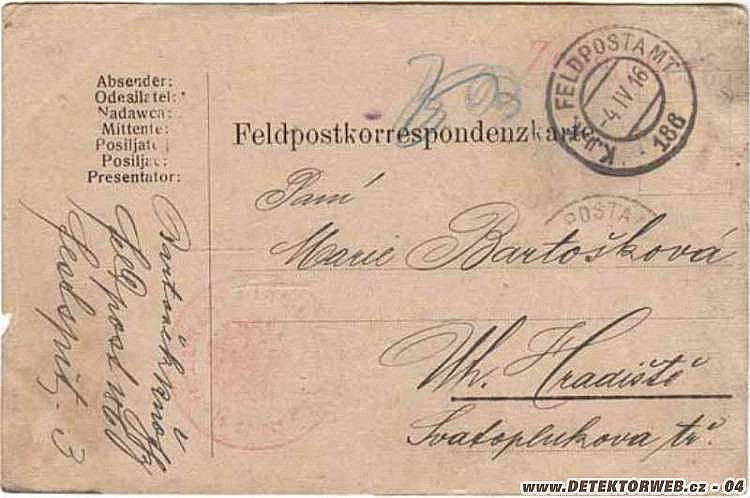 Absender:
Odesílatel:
Nadawca:
Mittente:
Posiljatelj
Posiljac:
Presentator:
Feldpostkorrespondenzkarte
K.u.k. FELDPOSTAMT
-4.IV.16
186
POSTAM
Paní
Marie Bartošková
Uh. Hradiště
Svatoplukova tř.
Feldpost
3
www.DETEKTORWEB.cz - 04